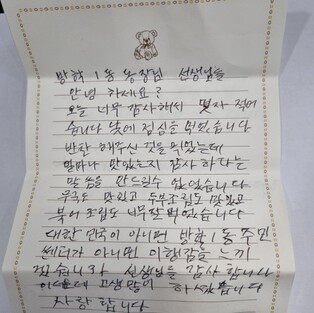 방학 1동 동장님 선생님들
안녕 하세요?
오늘 너무 감사해서 몇자 적어
습니다 낮에 점심을 먹었습니다
반찬 해주신 것을 먹었는데
얼마나 맛있는지 감사 하다는
말씀을 안드릴수 없었습니다
무국도 맛있고 두부조림도 맛있고
북어 조림도 너무 잘 먹었습니다
대한 민국이 아니면 방학 1동 주민
쎈터가 아니면 이행감을 느끼
겠습니까 선생님들 감사 합니다
이더운데 고생많이 하셨습니다
사랑 합니다